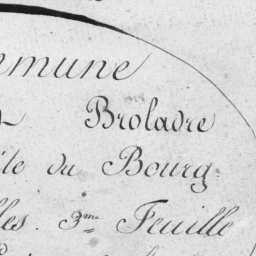 mmune
Broladre
ile du Bourg
lles. 3me Feuille